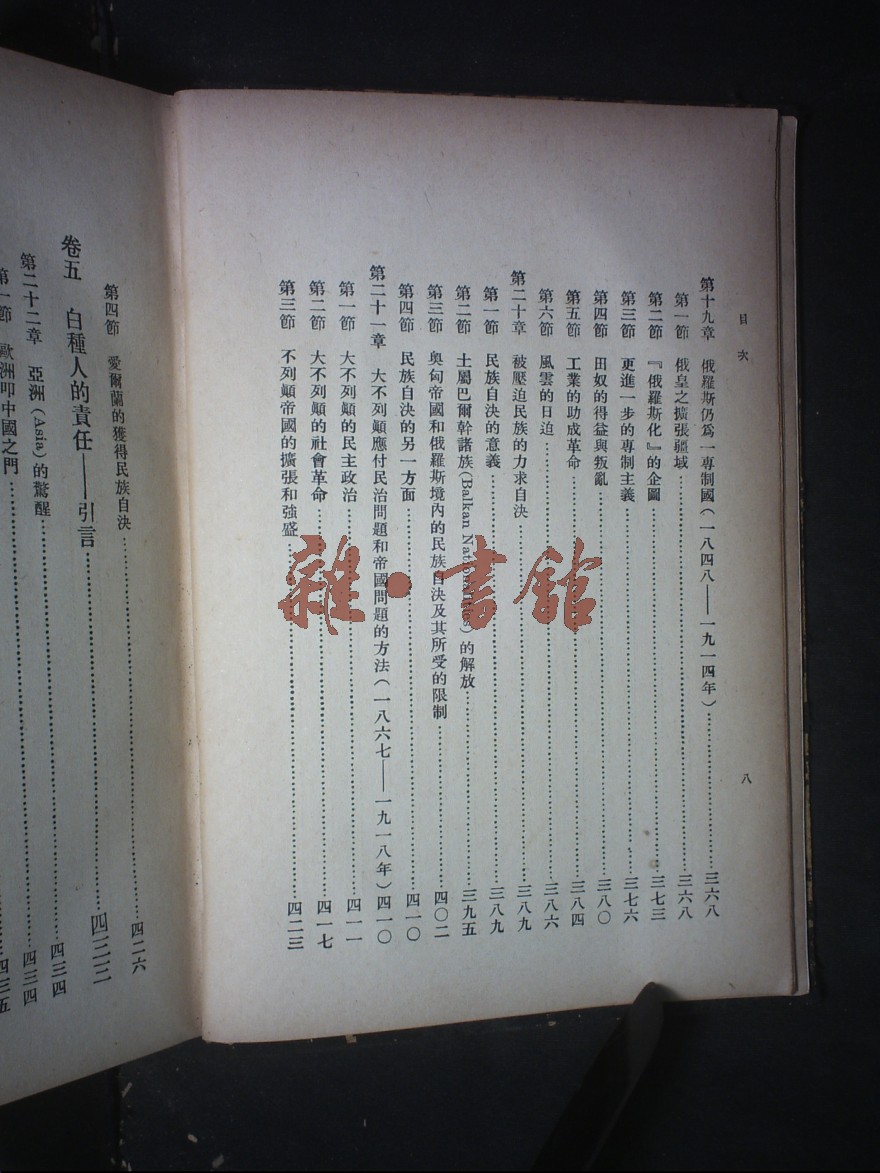 目次
八
第十九章 俄羅斯仍爲一專制國(一八四八——一九一四年)……三六八
第一節 俄皇之擴張疆域……三六八
第二節 『俄羅斯化』的企圖……三七三
第三節 更進一步的專制主義……三七六
第四節 田奴的得益與叛亂……三八〇
第五節 工業的助成革命……三八四
第六節 風雲的日迫……三八六
第二十章 被壓迫民族的力求自決……三八九
第一節 民族自決的意義……三八九
第二節 土屬巴爾幹諸族(Balkan Nationalities)的解放……三九五
第三節 奧匈帝國和俄羅斯境內的民族自決及其所受的限制……四〇二
第四節 民族自決的另一方面……四一〇
第二十一章 大不列顚應付民治問題和帝國問題的方法(一八六七——一九一八年)四一〇
第一節 大不列顚的民主政治……四一一
第二節 大不列顚的社會革命……四一七
第三節 不列顚帝國的擴張和強盛……四二三
第四節 愛爾蘭的獲得民族自決……四二六
卷五 白種人的責任——引言……四三三
第二十二章 亞洲(Asia)的驚醒……四三四
第一節 歐洲叩中國之門……四三四
四三五
雜·書館